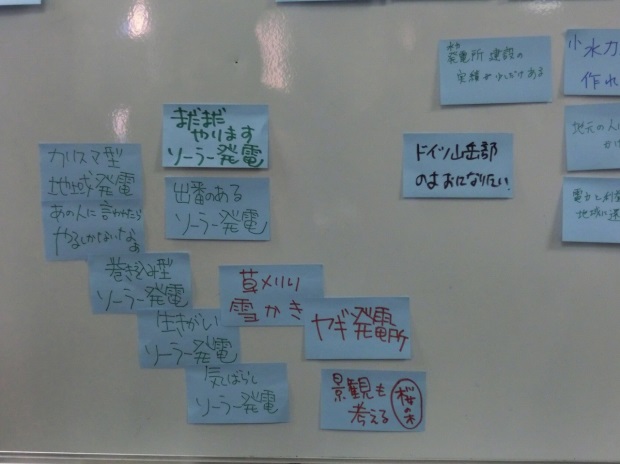 まだまだ
やります
ソーラー発電
カリスマ型
地域発電
あの人に言われたら
やるしかないなぁ
出番のある
ソーラー発電
巻き込み型
ソーラー発電
生きがい
ソーラー発電
気ばらし
ソーラー発電
草メリリ
雪かき
ヤギ発電所
景観も
考える
桜の木
ドイツ山岳部
のようになりたい
発電所建設の
実績が少しだけある
小水力
作れ
地元の人
電力と利
地域に還